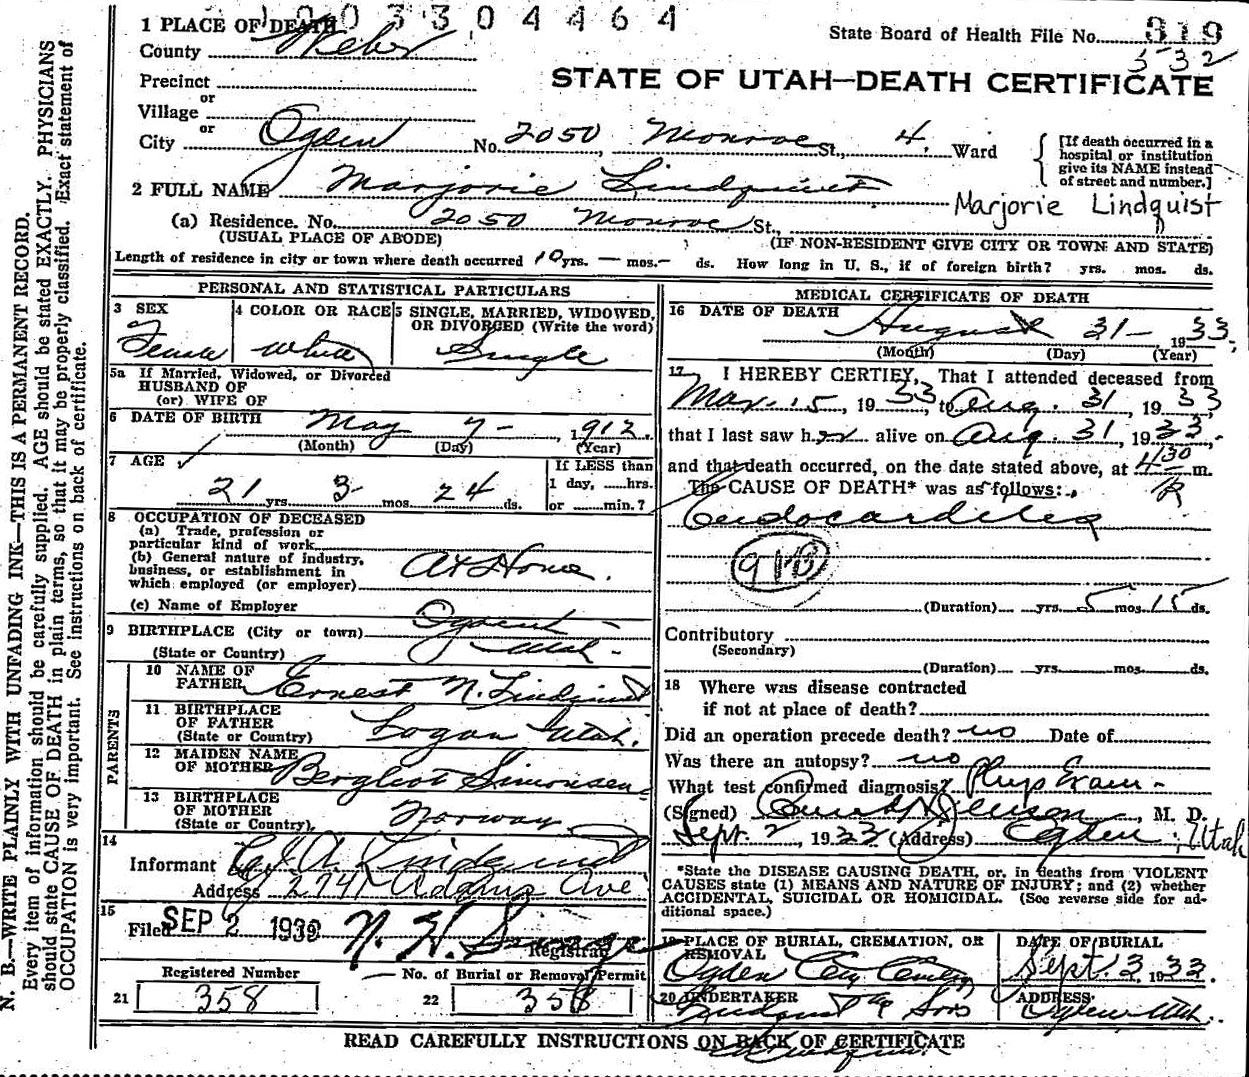 1003304464
1 PLACE OF DEATH
State Board of Health File No. 319
532
County Weber
STATE OF UTAH—DEATH CERTIFICATE
Precinct
or
Village
or
City Ogden No. 2050, Monroe St., 4. Ward
[If death occurred in a hospital or institution give its NAME instead of street and number.]
2 FULL NAME Marjorie Lindquist
Marjorie Lindquist
(a) Residence. No. 2050 Monroe St.,
(USUAL PLACE OF ABODE) (IF NON-RESIDENT GIVE CITY OR TOWN AND STATE)
Length of residence in city or town where death occurred 10 yrs. — mos. - ds. How long in U. S., if of foreign birth? yrs. mos. ds.
PERSONAL AND STATISTICAL PARTICULARS
3 SEX Female
4 COLOR OR RACE White
5 SINGLE, MARRIED, WIDOWED, OR DIVORCED (Write the word) Single
5a If Married, Widowed, or Divorced
HUSBAND OF
(or) WIFE OF
6 DATE OF BIRTH May 7-, 1912.
(Month) (Day) (Year)
7 AGE
21 yrs. 3- mos. 24 ds.
If LESS than
1 day, ......hrs.
or ......min.?
8 OCCUPATION OF DECEASED
(a) Trade, profession or
particular kind of work
(b) General nature of industry,
business, or establishment in
which employed (or employer) At Home.
(c) Name of Employer
9 BIRTHPLACE (City or town) Ogden -
(State or Country) Utah -
PARENTS
10 NAME OF FATHER Ernest N. Lindquist
11 BIRTHPLACE OF FATHER (State or Country) Logan Utah.
12 MAIDEN NAME OF MOTHER Bergliot Simonsen
13 BIRTHPLACE OF MOTHER (State or Country) Norway
14
Informant Lindquist
Address 2741 Adams Ave
15
Filed SEP 2 1933 N. H.
Registrar
Registered Number
21 358
No. of Burial or Removal Permit
22 358
MEDICAL CERTIFICATE OF DEATH
16 DATE OF DEATH
August 31- 1933.
(Month) (Day) (Year)
17 I HEREBY CERTIFY, That I attended deceased from
Mar. 15, 1933, to Aug. 31, 1933,
that I last saw her alive on Aug. 31, 1933,
and that death occurred, on the date stated above, at 4:30 m.
The CAUSE OF DEATH* was as follows:
Endocarditis
(Duration) yrs. 5 mos. 15 ds.
Contributory
(Secondary)
(Duration) yrs. mos. ds.
18 Where was disease contracted
if not at place of death?
Did an operation precede death? no Date of
Was there an autopsy? no
What test confirmed diagnosis? Phys Exam -
(Signed) Jenson, M. D.
Sept. 2, 1933 (Address) Ogden, Utah
*State the DISEASE CAUSING DEATH, or, in deaths from VIOLENT
CAUSES state (1) MEANS AND NATURE OF INJURY; and (2) whether
ACCIDENTAL, SUICIDAL OR HOMICIDAL. (See reverse side for ad-
ditional space.)
19 PLACE OF BURIAL, CREMATION, OR REMOVAL
Ogden City Cemetery
DATE OF BURIAL
Sept. 3, 1933.
20 UNDERTAKER
Lindquist & Sons
ADDRESS
Ogden Utah.
READ CAREFULLY INSTRUCTIONS ON BACK OF CERTIFICATE
N. B.—WRITE PLAINLY WITH UNFADING INK—THIS IS A PERMANENT RECORD.
Every item of information should be carefully supplied. AGE should be stated EXACTLY. PHYSICIANS
should state CAUSE OF DEATH in plain terms, so that it may be properly classified. Exact statement of
OCCUPATION is very important. See instructions on back of certificate.